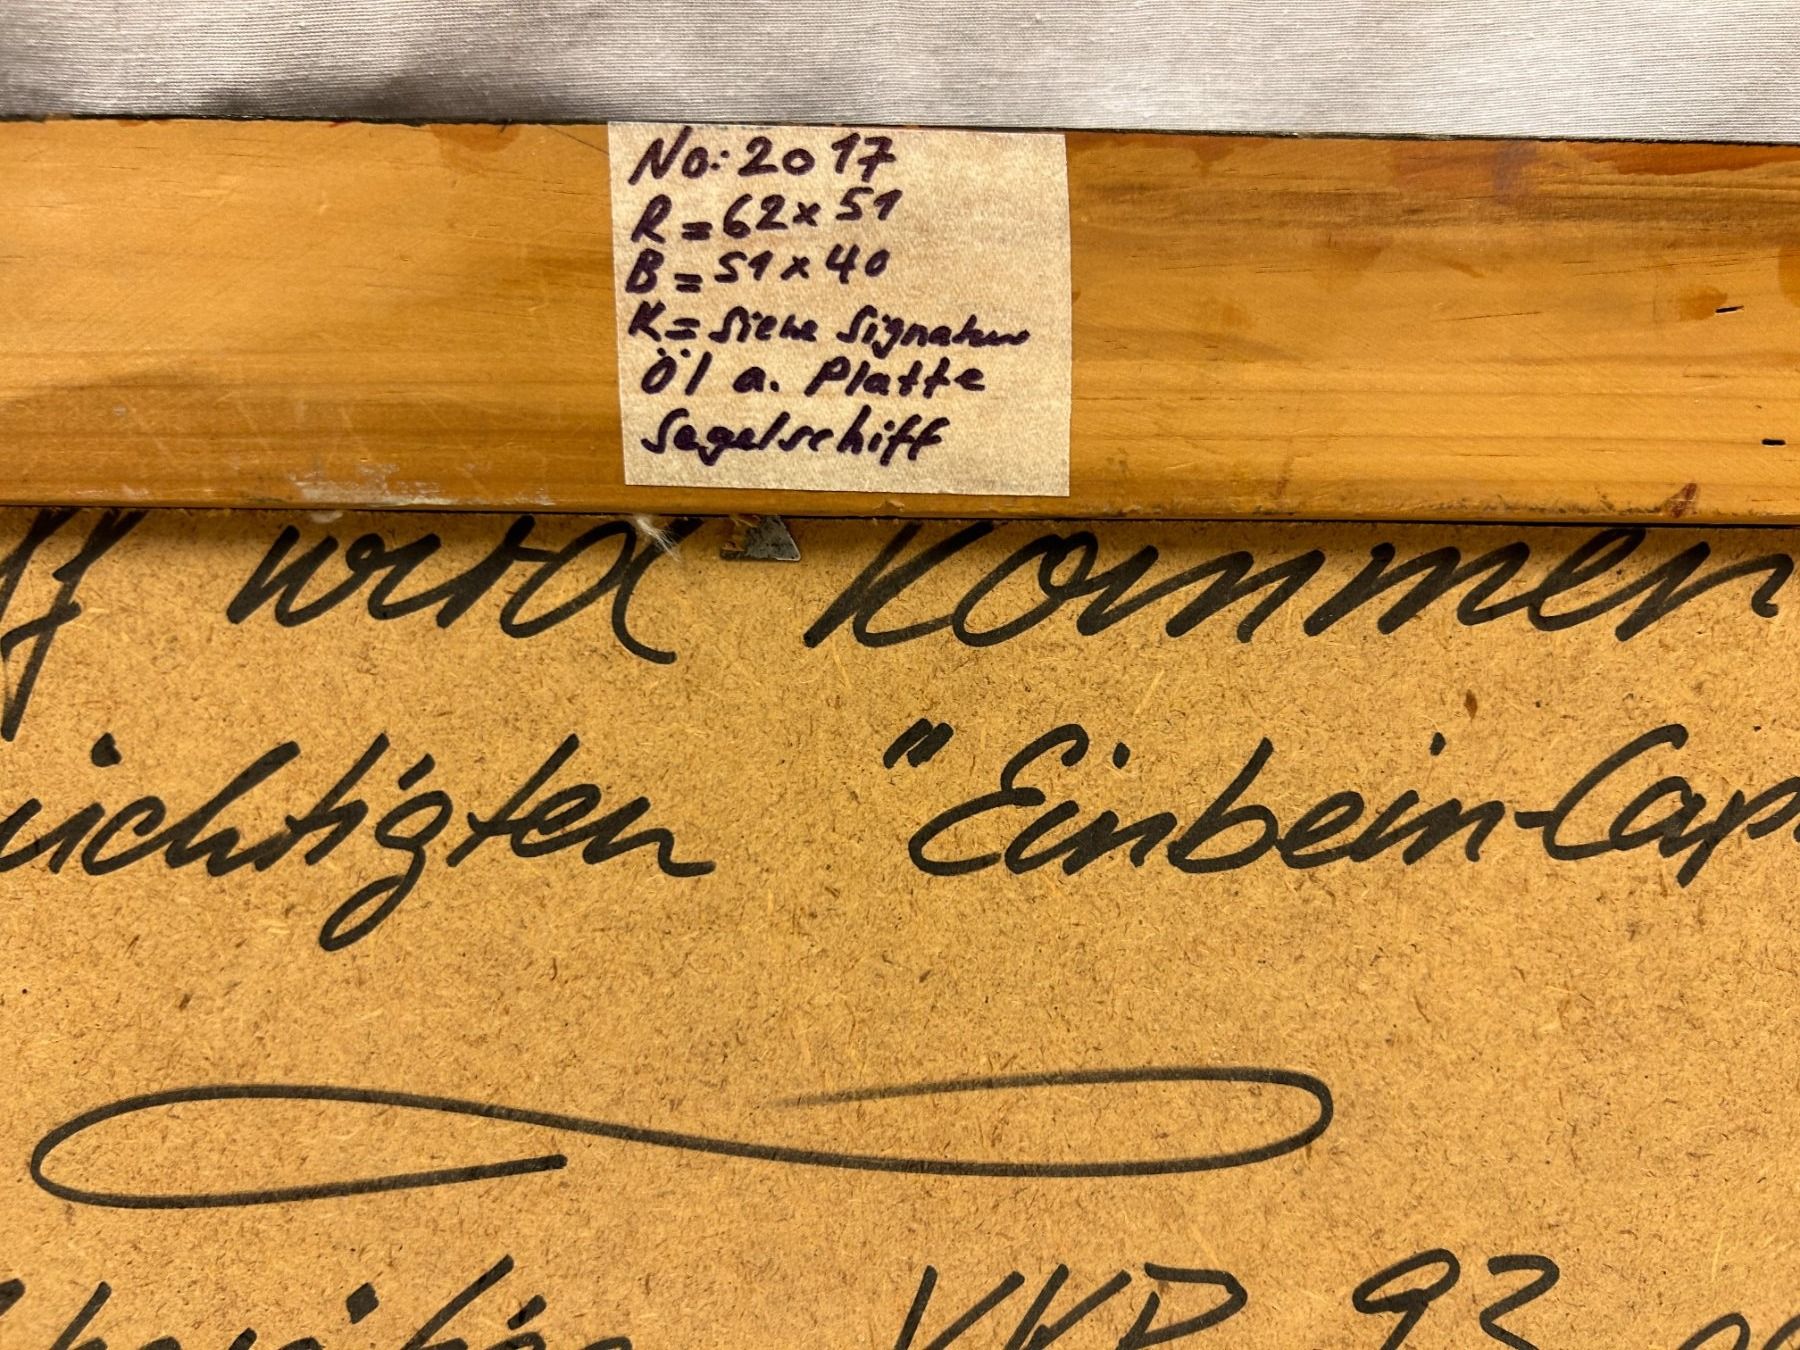 No.: 2017
R = 62 x 51
B = 51 x 40
K = Siehe Signatur
Öl a. Platte
Segelschiff
wird kommen
ichtigten "Einbein-Cap
93